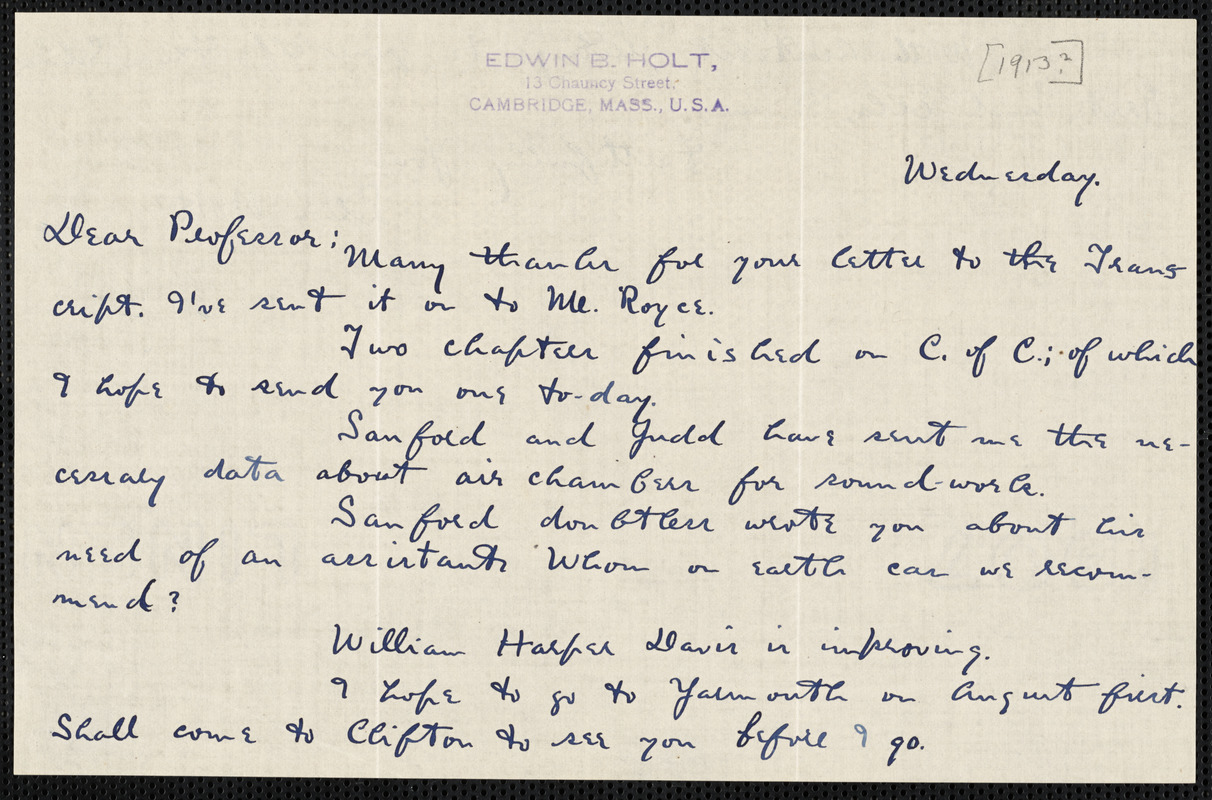 EDWIN B. HOLT,
13 Chauncy Street,
CAMBRIDGE, MASS., U.S.A.
[1913?]
Wednesday.
Dear Professor:
Many thanks for your letter to the Trans
cript. I've sent it on to Mr. Royce.
Two chapters finished on C. of C.; of which
I hope to send you one to-day.
Sanford and Judd have sent me the ne-
cessary data about air chambers for sound-work.
Sanford doubtless wrote you about his
need of an assistant. Whom on earth can we recom-
mend?
William Harper Davis is improving.
I hope to go to Yarmouth on August first.
Shall come to Clifton to see you before I go.